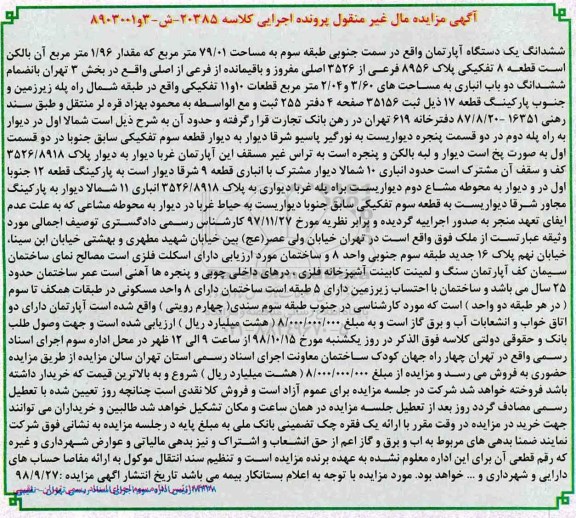 آگهی مزایده مال غیر منقول پرونده اجرایی کلاسه ۲۰۳۸۵-ش-۳و۸۹۰۳۰۰۱
ششدانگ یک دستگاه آپارتمان واقع در سمت جنوبی طبقه سوم به مساحت ۷۹/۰۱ متر مربع که مقدار ۱/۹۶ متر مربع آن بالکن
است قطعه ۸ تفکیکی پلاک ۸۹۵۶ فرعی از ۳۵۲۶ اصلی مفروز و باقیمانده از فرعی از اصلی واقع در بخش ۳ تهران بانضمام
ششدانگ دو باب انباری به مساحت های ۳/۶۰ و ۲/۰۴ متر مربع قطعات ۱۰و۱۱ تفکیکی واقع در طبقه شمال راه پله زیرزمین و
جنوب پارکینگ قطعه ۱۷ ذیل ثبت ۳۵۱۵۶ صفحه ۴ دفتر ۲۵۵ ثبت و مع الواسطه به محمود بهزاد قره لر منتقل و طبق سند
رهنی ۱۶۳۵۱ -۸۷/۸/۲۰ دفترخانه ۶۱۹ تهران در رهن بانک تجارت قرار گرفته و حدود آن به شرح ذیل است شمالا اول در دیوار
به راه پله دوم در دو قسمت پنجره دیواریست به نورگیر پاسیو شرقا دیوار به دیوار قطعه سوم تفکیکی سابق جنوبا در دو قسمت
اول به صورت پخ است دیوار و لبه بالکن و پنجره است به تراس غیر مسقف این آپارتمان غربا دیوار به دیوار پلاک ۳۵۲۶/۸۹۱۸
کف و سقف آن مشترک است حدود انباری ۱۰ شمالا دیوار مشترک با انباری قطعه ۹ شرقا دیوار است به پارکینگ قطعه ۱۲ جنوبا
اول در و دیوار به محوطه مشاع دوم دیواریست به راه پله غربا دیواری به پلاک ۳۵۲۶/۸۹۱۸ انباری ۱۱ شمالا دیوار به پارکینگ
مجاور شرقا دیواریست به قطعه سوم تفکیکی سابق جنوبا دیواریست به حیاط غربا در دیوار به محوطه مشاعی که به علت عدم
ایفای تعهد منجر به صدور اجراییه گردیده و برابر نظریه مورخ ۹۷/۱۱/۲۷ کارشناس رسمی دادگستری توصیف اجمالی مورد
وثیقه عبارتست از ملک فوق واقع است در تهران خیابان ولی عصر(عج) بین خیابان شهید مطهری و بهشتی خیابان ابن سینا،
خیابان نهم پلاک ۱۶ جدید طبقه سوم جنوبی واحد ۸ و ساختمان مورد ارزیابی دارای اسکلت فلزی است مصالح نمای ساختمان
سیمان کف آپارتمان سنگ و لمینت کابینت آشپزخانه فلزی ، درهای داخلی چوبی و پنجره ها آهنی است عمر ساختمان حدود
۲۵ سال می باشد و ساختمان با احتساب زیرزمین دارای ۵ طبقه است ساختمان دارای ۸ واحد مسکونی در طبقات همکف تا سوم
( در هر طبقه دو واحد ) است که مورد کارشناسی در جنوب طبقه سوم سندی ( چهارم رویتی ) واقع شده است آپارتمان دارای دو
اتاق خواب و انشعابات آب و برق گاز است و به مبلغ ۸/۰۰۰/۰۰۰/۰۰۰ (هشت میلیارد ریال ) ارزیابی شده است و جهت وصول طلب
بانک و حقوقی دولتی کلاسه فوق الذکر در روز یکشنبه مورخ ۹۸/۱۰/۱۵ از ساعت ۹ الی ۱۲ ظهر در محل اداره سوم اجرای اسناد
رسمی واقع در تهران چهار راه جهان کودک ساختمان معاونت اجرای اسناد رسمی استان تهران سالن مزایده از طریق مزایده
حضوری به فروش می رسد و مزایده از مبلغ ۸/۰۰۰/۰۰۰/۰۰۰ ( هشت میلیارد ریال ) شروع و به بالاترین قیمت که خریدار داشته
باشد فروخته خواهد شد شرکت در جلسه مزایده برای عموم آزاد است و فروش کلا نقدی است چنانچه روز تعیین شده با تعطیل
رسمی مصادف گردد روز بعد از تعطیل جلسه مزایده در همان ساعت و مکان تشکیل خواهد شد طالبین و خریداران می توانند
جهت خرید در مزایده در وقت مقرر با ارائه یک فقره چک تضمینی بانک ملی به مبلغ پایه در جلسه مزایده به نشانی فوق شرکت
نمایند ضمنا بدهی های مربوط به اب و برق و گاز اعم از حق انشعاب و اشتراک و نیز بدهی مالیاتی و عوارض شهرداری و غیره
که رقم قطعی آن برای این اداره معلوم نشده به عهده برنده مزایده است و تنظیم سند انتقال موکول به ارائه مفاصا حساب های
دارایی و شهرداری و ... خواهد بود. مورد مزایده با توجه به اعلام بستانکار بیمه می باشد تاریخ انتشار آگهی مزایده :۹۸/۹/۲۷
رئیس اداره سوم اجرای اسناد رسمی تهران - نقیبی